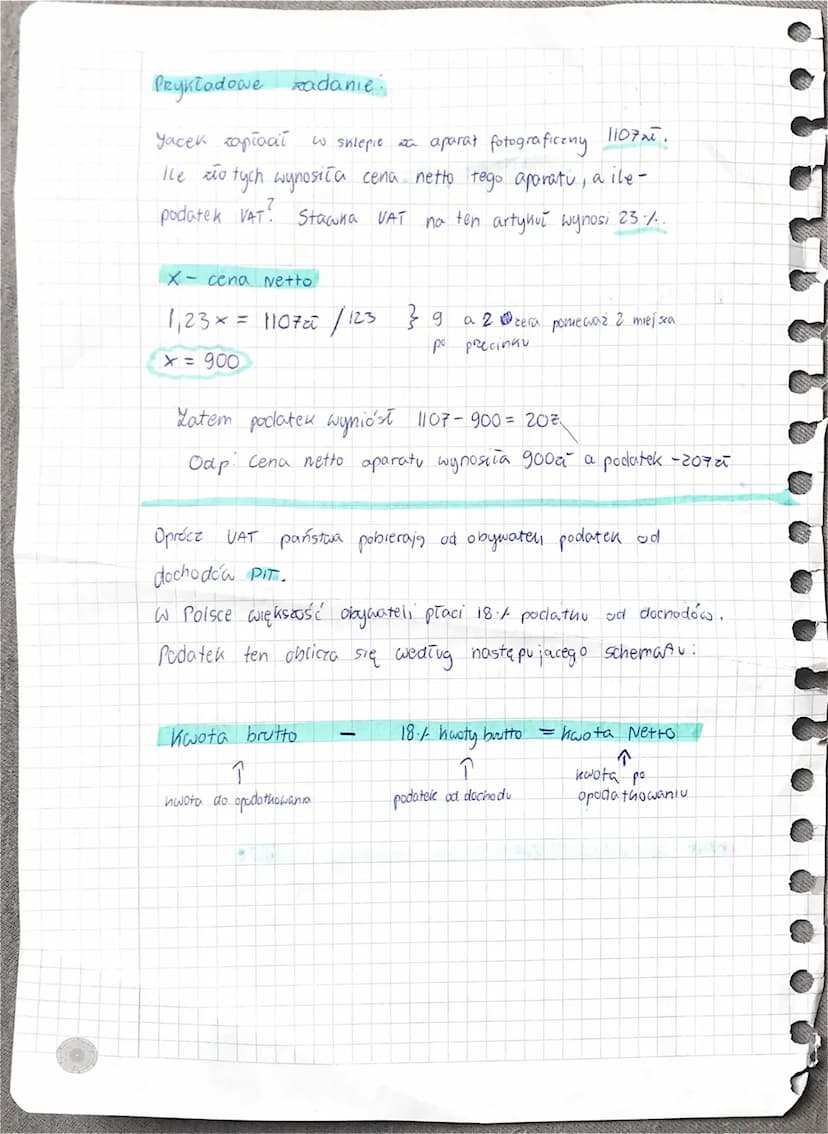 Przykładowe zadanie:
Jacek zapłacił w sklepie za aparat fotograficzny 1107 zł.
Ile złotych wynosiła cena netto tego aparatu, a ile -
podatek VAT? Stawka VAT na ten artykuł wynosi 23%.
x - cena netto
1,23x = 1107 zł /123 } 9 a 2 zera ponieważ 2 miejsca
po przecinku
x = 900
Zatem podatek wyniósł 1107 - 900 = 207
Odp: Cena netto aparatu wynosiła 900 zł a podatek - 207 zł
Oprócz VAT państwa pobierają od obywateli podatek od
dochodów PIT.
W Polsce większość obywateli płaci 18% podatku od dochodów.
Podatek ten oblicza się według następującego schematu:
Kwota brutto - 18% kwoty brutto = kwota Netto
↑ ↑ ↑
kwota do opodatkowania podatek od dochodu kwota po
opodatkowaniu